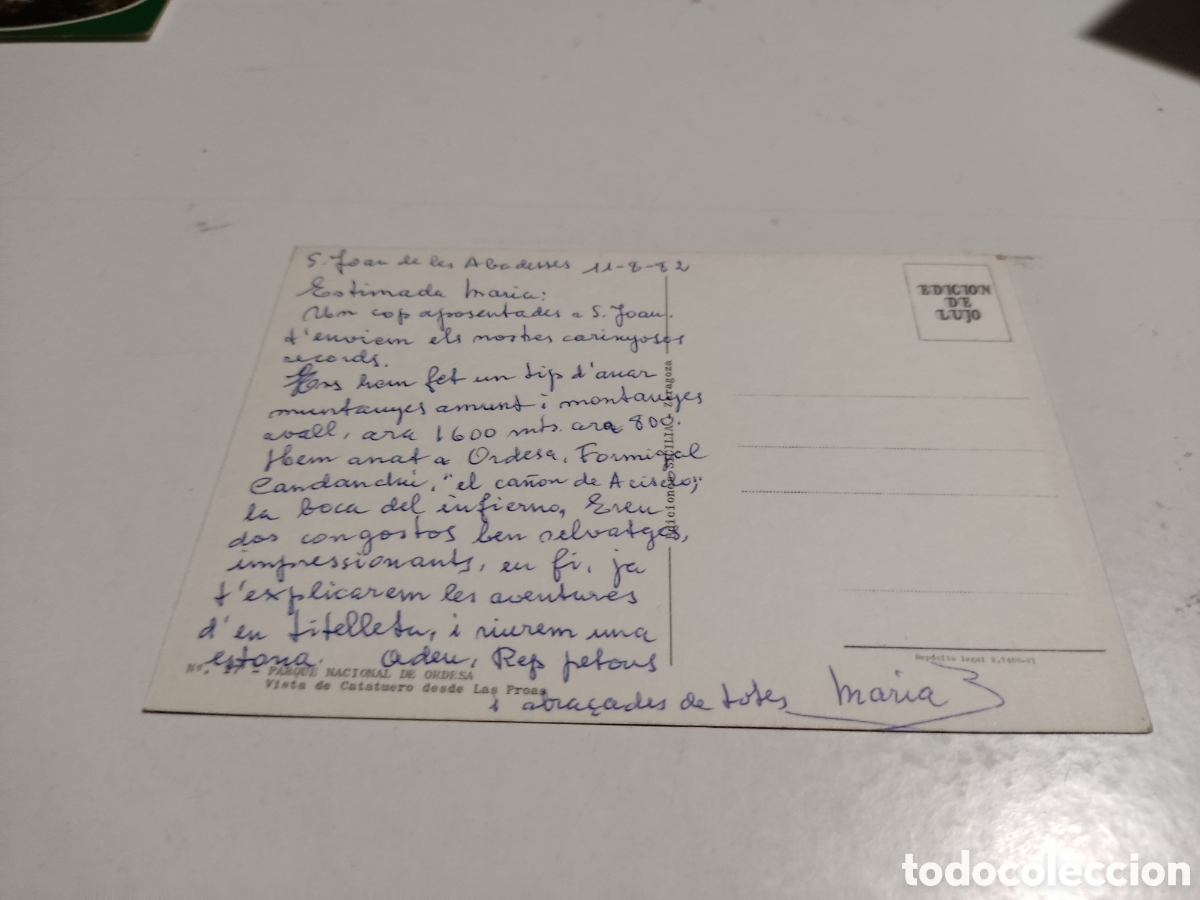 S. Joan de les Abadesses 11-8-82
Estimada Maria:
Un cop aposentades a S. Joan,
t'enviem els nostres carinyosos
records.
Ens hem fet un tip d'anar
muntanyes amunt i montanyes
avall, ara 1600 mts. ara 800.
Hem anat a Ordesa, Formigal
Candanchú, "el cañon de
la boca del infierno, Ereu
dos congostos ben selvatges,
impressionants, en fi, ja
t'explicarem les aventures
d'en titelleta, i riurem una
estona. Adeu, Rep petons
i abraçades de totes Maria
Nº. 27 - PARQUE NACIONAL DE ORDESA
Vista de Catatuero desde Las Proas
Ediciones SICILIA - Zaragoza
EDICION
DE
LUJO
Depósito legal
todocoleccion